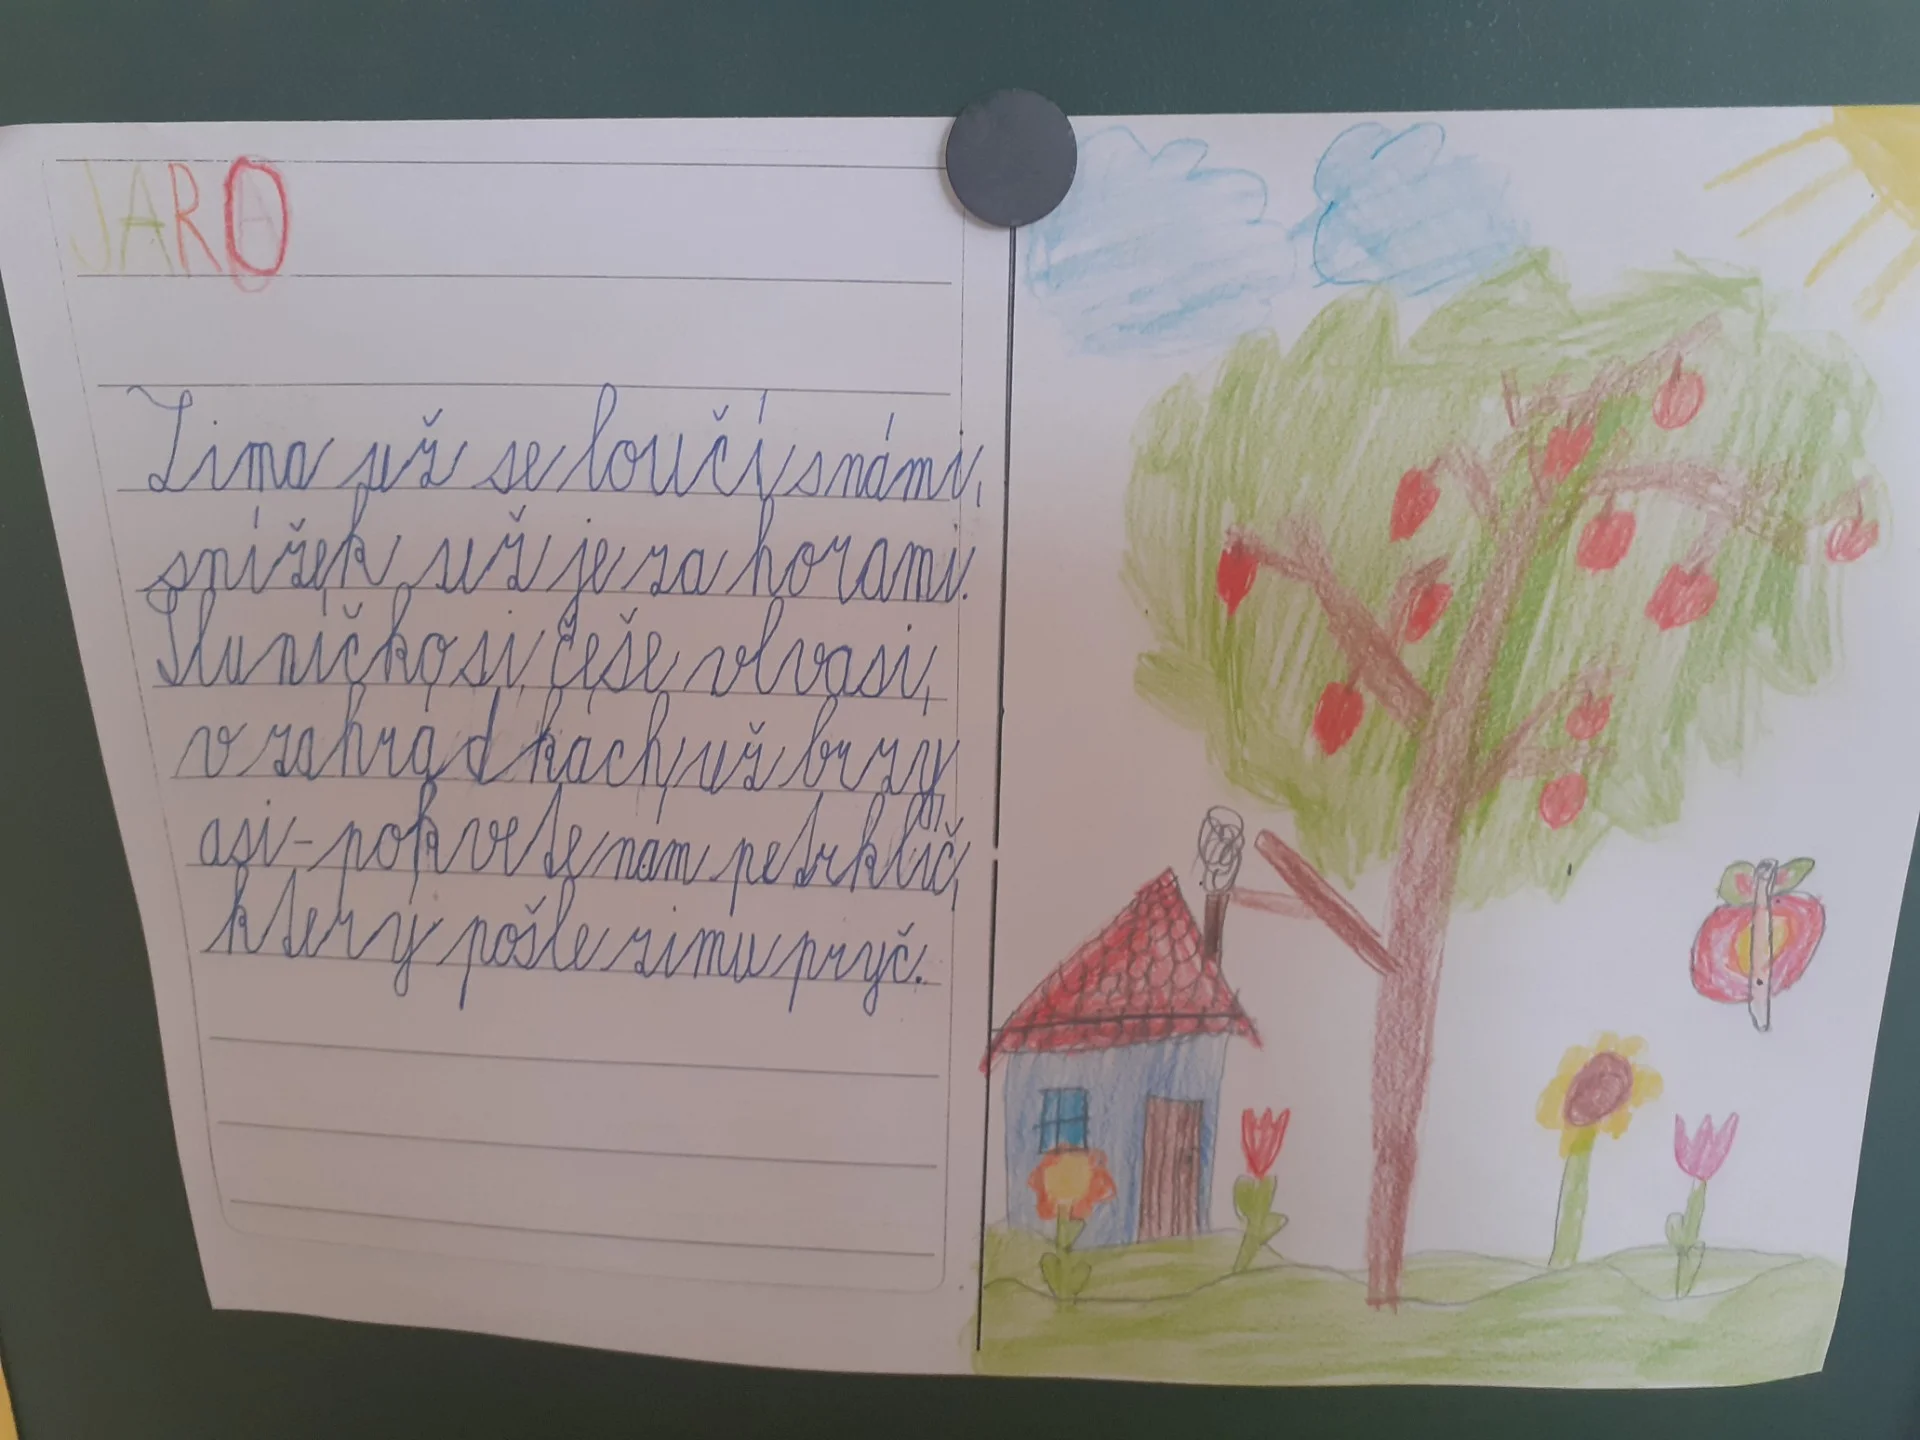 JARO
Zima už se loučí s námi,
snížek už je za horami.
Sluníčko si češe vlvasi,
v zahrádkach už brzy
asi - pokvete nám petrklíč,
který pošle zimu pryč.